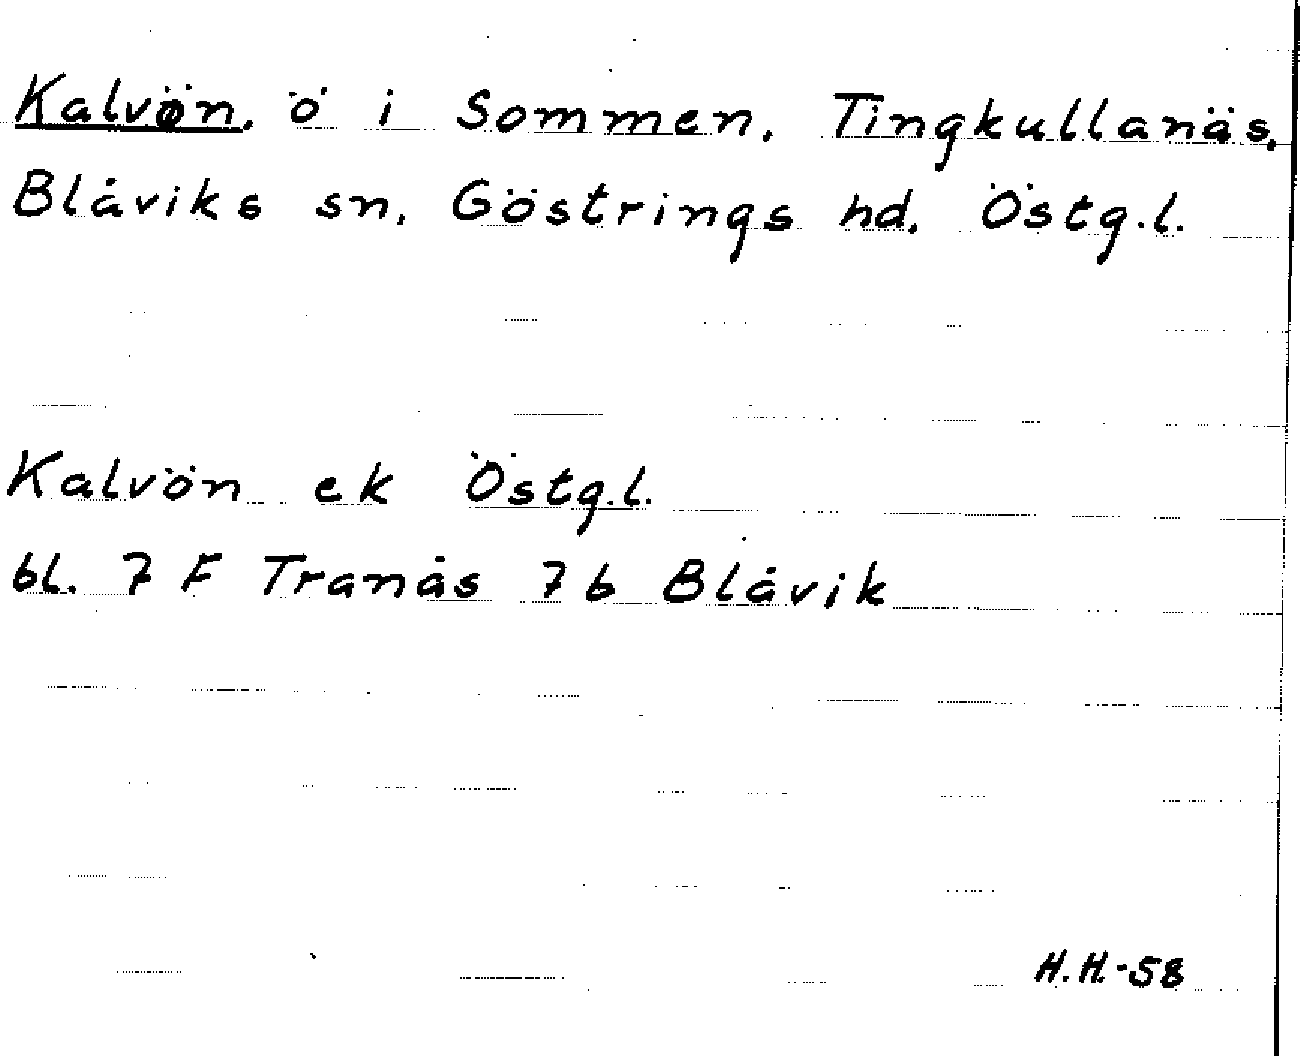 Kalvön. ö i Sommen. Tingkullanäs.
Blåviks sn. Göstrings hd. Östg.l.
Kalvön ek Östg.l.
bl. 7 F Tranås 7 b Blåvik
H.H.-58